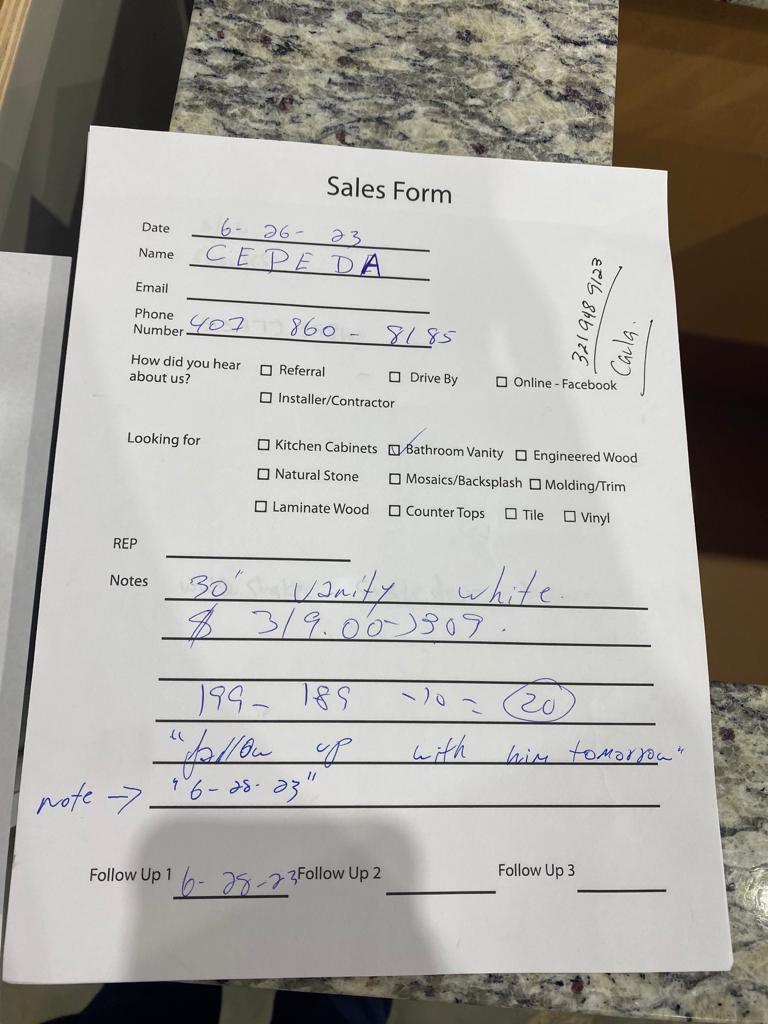 Sales Form
Date 6- 26- 23
Name CEPEDA
Email
Phone Number 407 860 - 8185
321 948 9123
Carla.
How did you hear about us? ☐ Referral ☐ Drive By ☐ Online - Facebook
☐ Installer/Contractor
Looking for ☐ Kitchen Cabinets ☑ Bathroom Vanity ☐ Engineered Wood
☐ Natural Stone ☐ Mosaics/Backsplash ☐ Molding/Trim
☐ Laminate Wood ☐ Counter Tops ☐ Tile ☐ Vinyl
REP
Notes 30" vanity white.
$ 319.00->309.
199- 189 -10 = 20
"follow up with him tomorrow"
note -> "6-28-23"
Follow Up 1 6-28-23 Follow Up 2 Follow Up 3